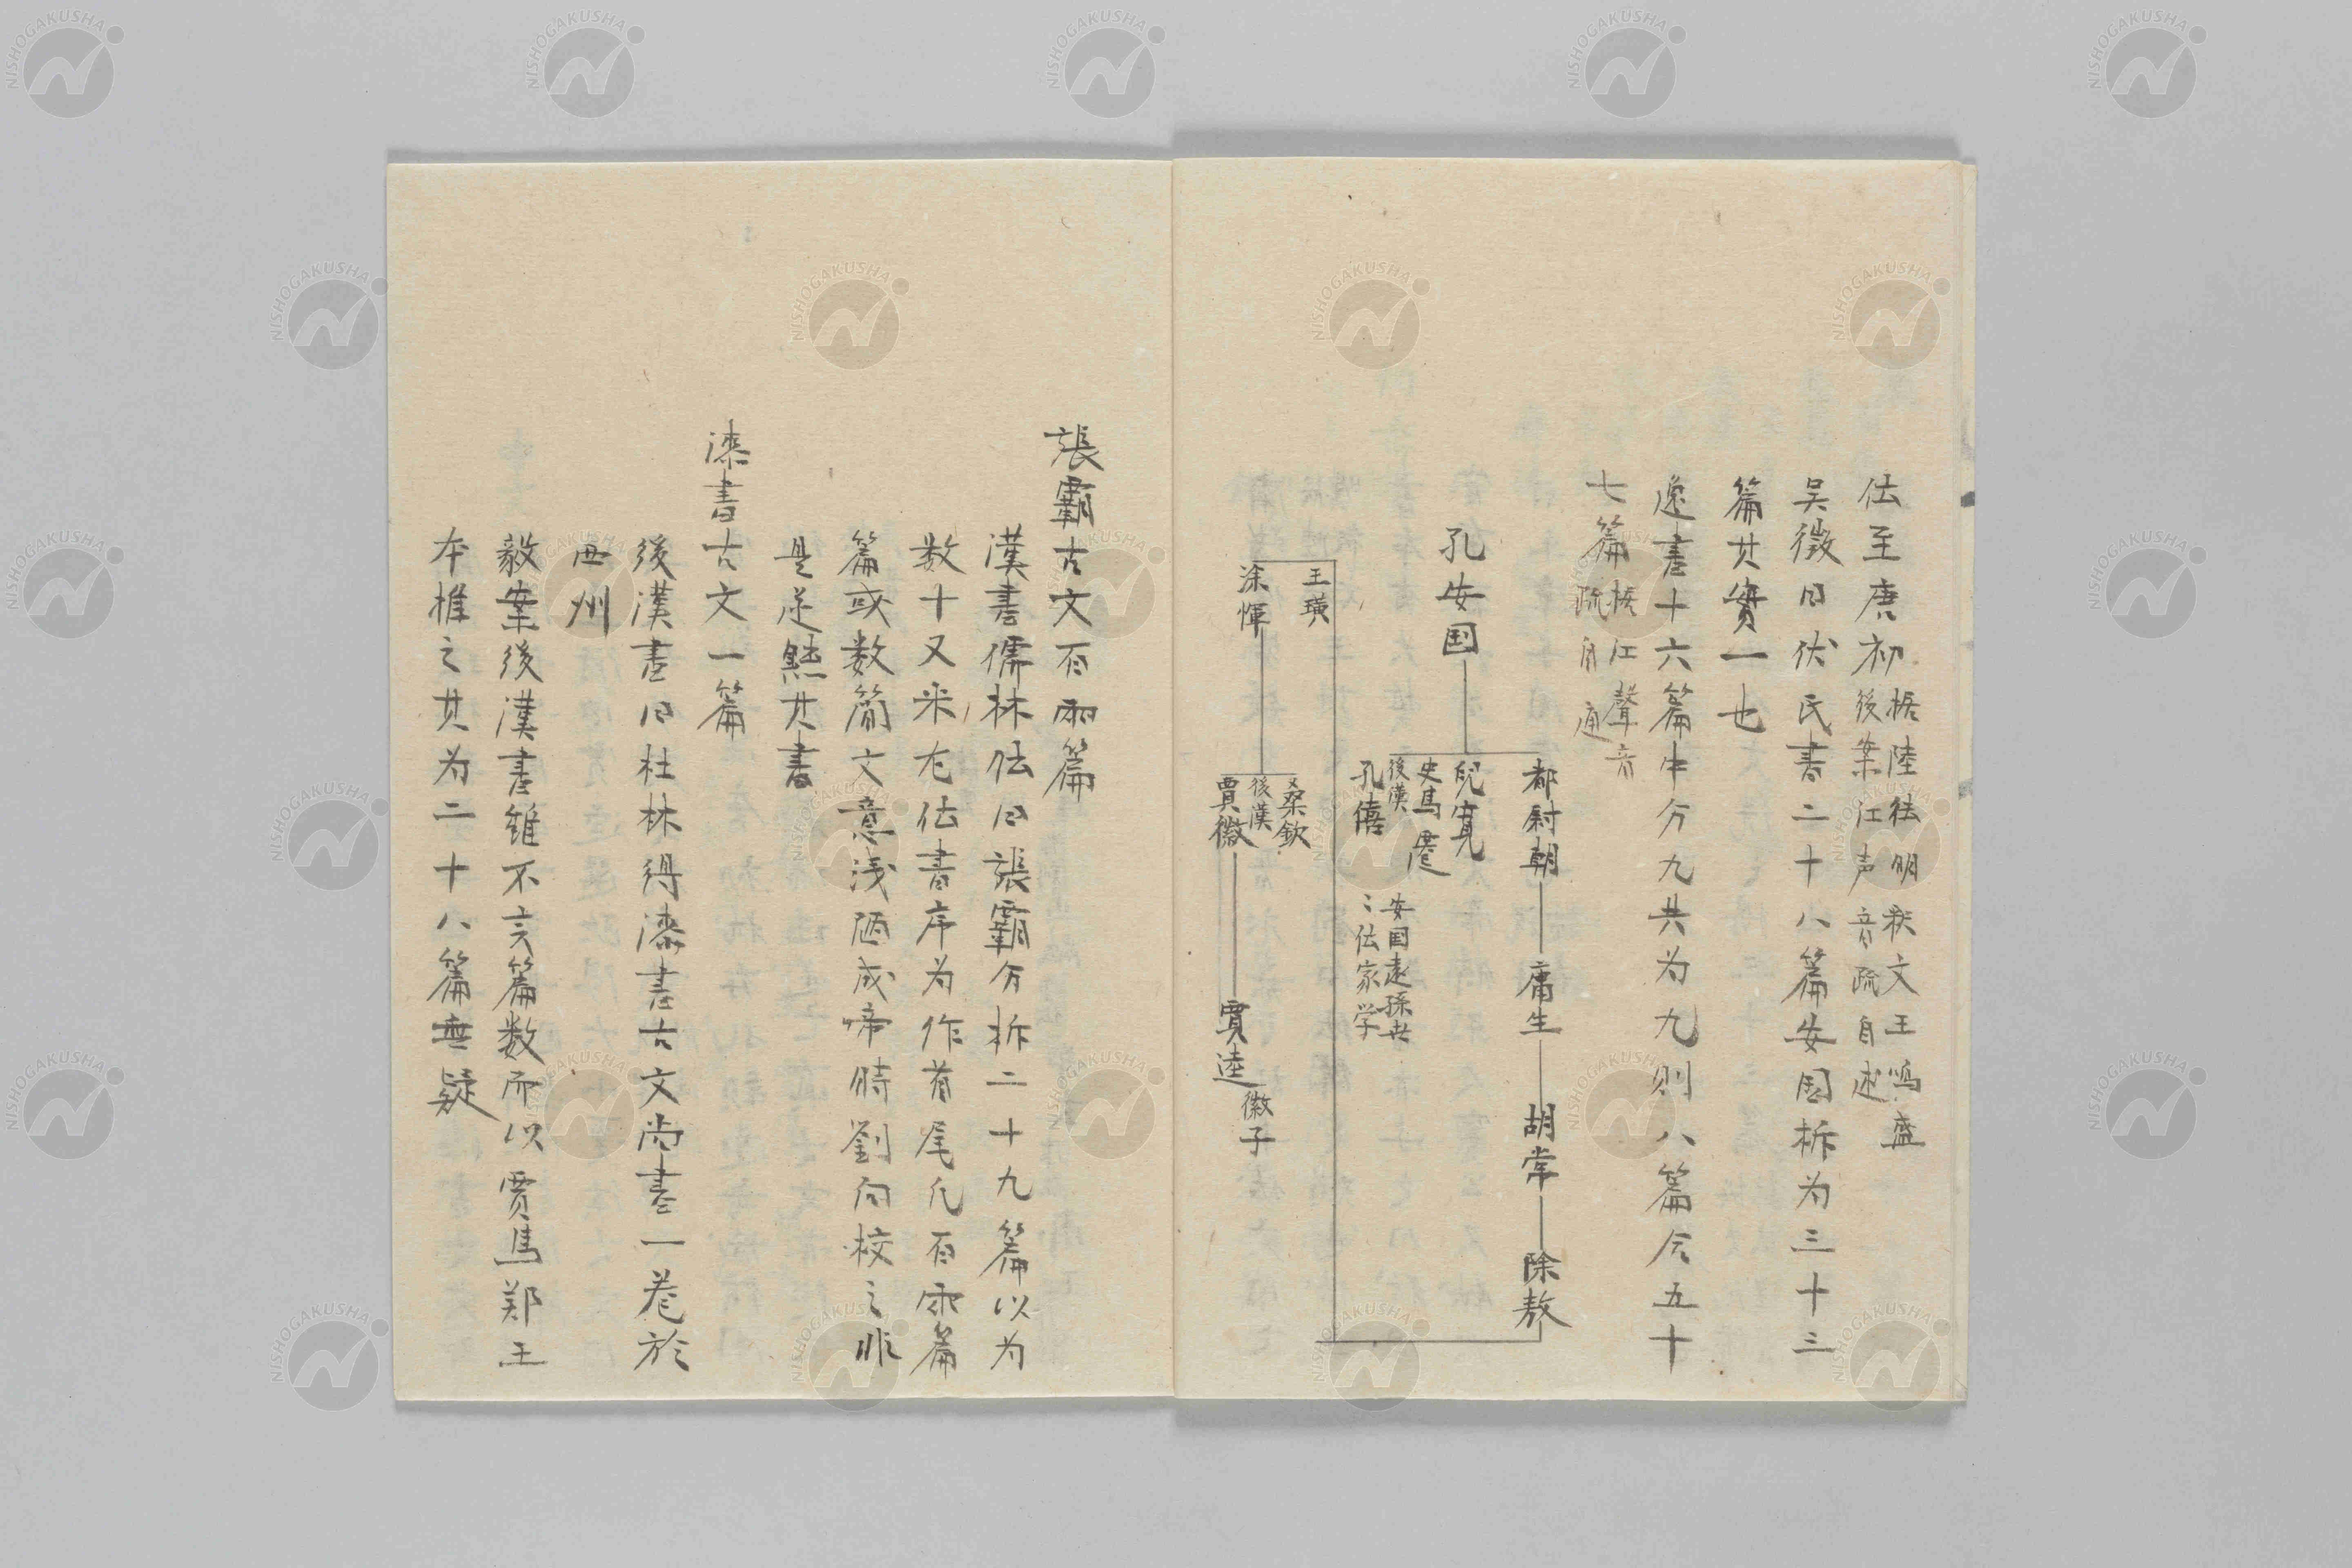 伝至唐初 拠陸徳明釈文王鳴盛
後案江声音疏自述
吴徴曰伏氏書二十八篇安国析为三十三
篇其實一也
逸書十六篇中分九共为九則八篇合五十
七篇 拠江聲音
疏自通
都尉朝 庸生 胡常 除敖
孔安国
兒寛
史馬遷
後漢
孔僖 安国遠孫世
〻伝家学
王璜
涂惲
桑欽
後漢
賈徽 賈逵 徽子
張霸古文百兩篇
漢書儒林伝曰張霸分析二十九篇以为
数十又采左伝書序为作首尾凡百兩篇
篇或数簡文意浅陋成帝時劉向校之非
是迋黜其書
漆書古文一篇
後漢書曰杜林得漆書古文尚書一巻於
西州
毅案後漢書雖不言篇数而以賈馬郑王
本推之其为二十八篇無疑
NISHOGAKUSHA